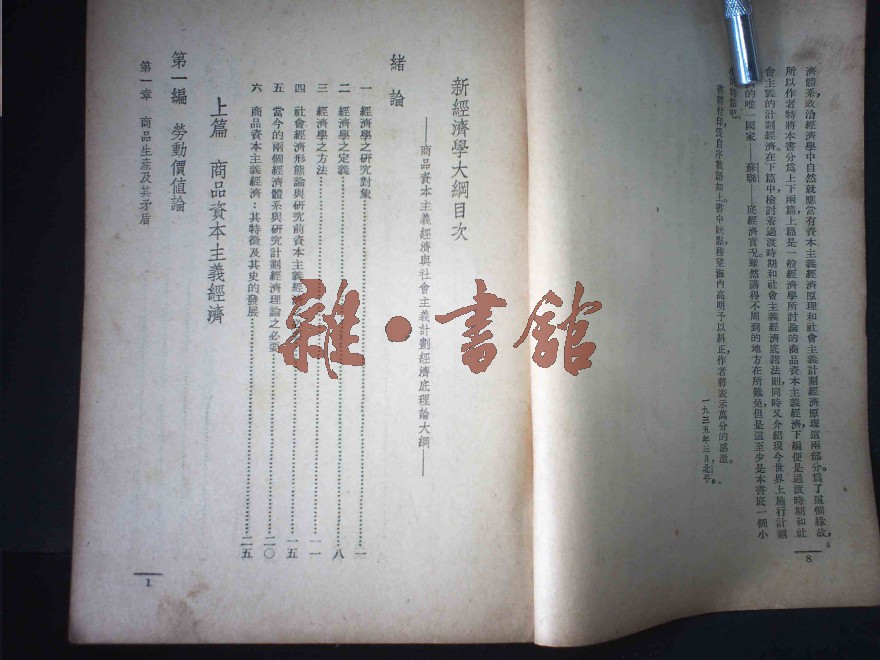 濟體系政治經濟學中自然就應當有資本主義經濟原理和社會主義計劃經濟原理這兩部分。爲了這個緣故,
所以作者特將本書分爲上下兩篇上篇是一般經濟學所討論的商品資本主義經濟,下編便是過渡時期和社
會主義的計劃經濟。在下篇中,檢討着過渡時期和社會主義經濟底諸法則,同時又介紹現今世界上施行計劃
的唯一國家——蘇聯——底經濟實況。雖然講得不周到的地方在所難免,但是這至少是本書底一個小
特點吧。
書體付印,爰自序數語如上。書中缺點,務望海內高明予以糾正,作者將表示萬分的感激。
一九三五年三月,北平。
8
新經濟學大綱目次
——商品資本主義經濟與社會主義計劃經濟底理論大綱——
緒論
一 經濟學之研究對象……一
二 經濟學之定義……八
三 經濟學之方法……一一
四 社會經濟形態論與研究前資本主義經濟……一五
五 當今的兩個經濟體系與研究計劃經濟理論之必要……二〇
六 商品資本主義經濟:其特徵及其史的發展……二五
上篇 商品資本主義經濟
第一編 勞動價值論
第一章 商品生產及其矛盾
1
雜·書館